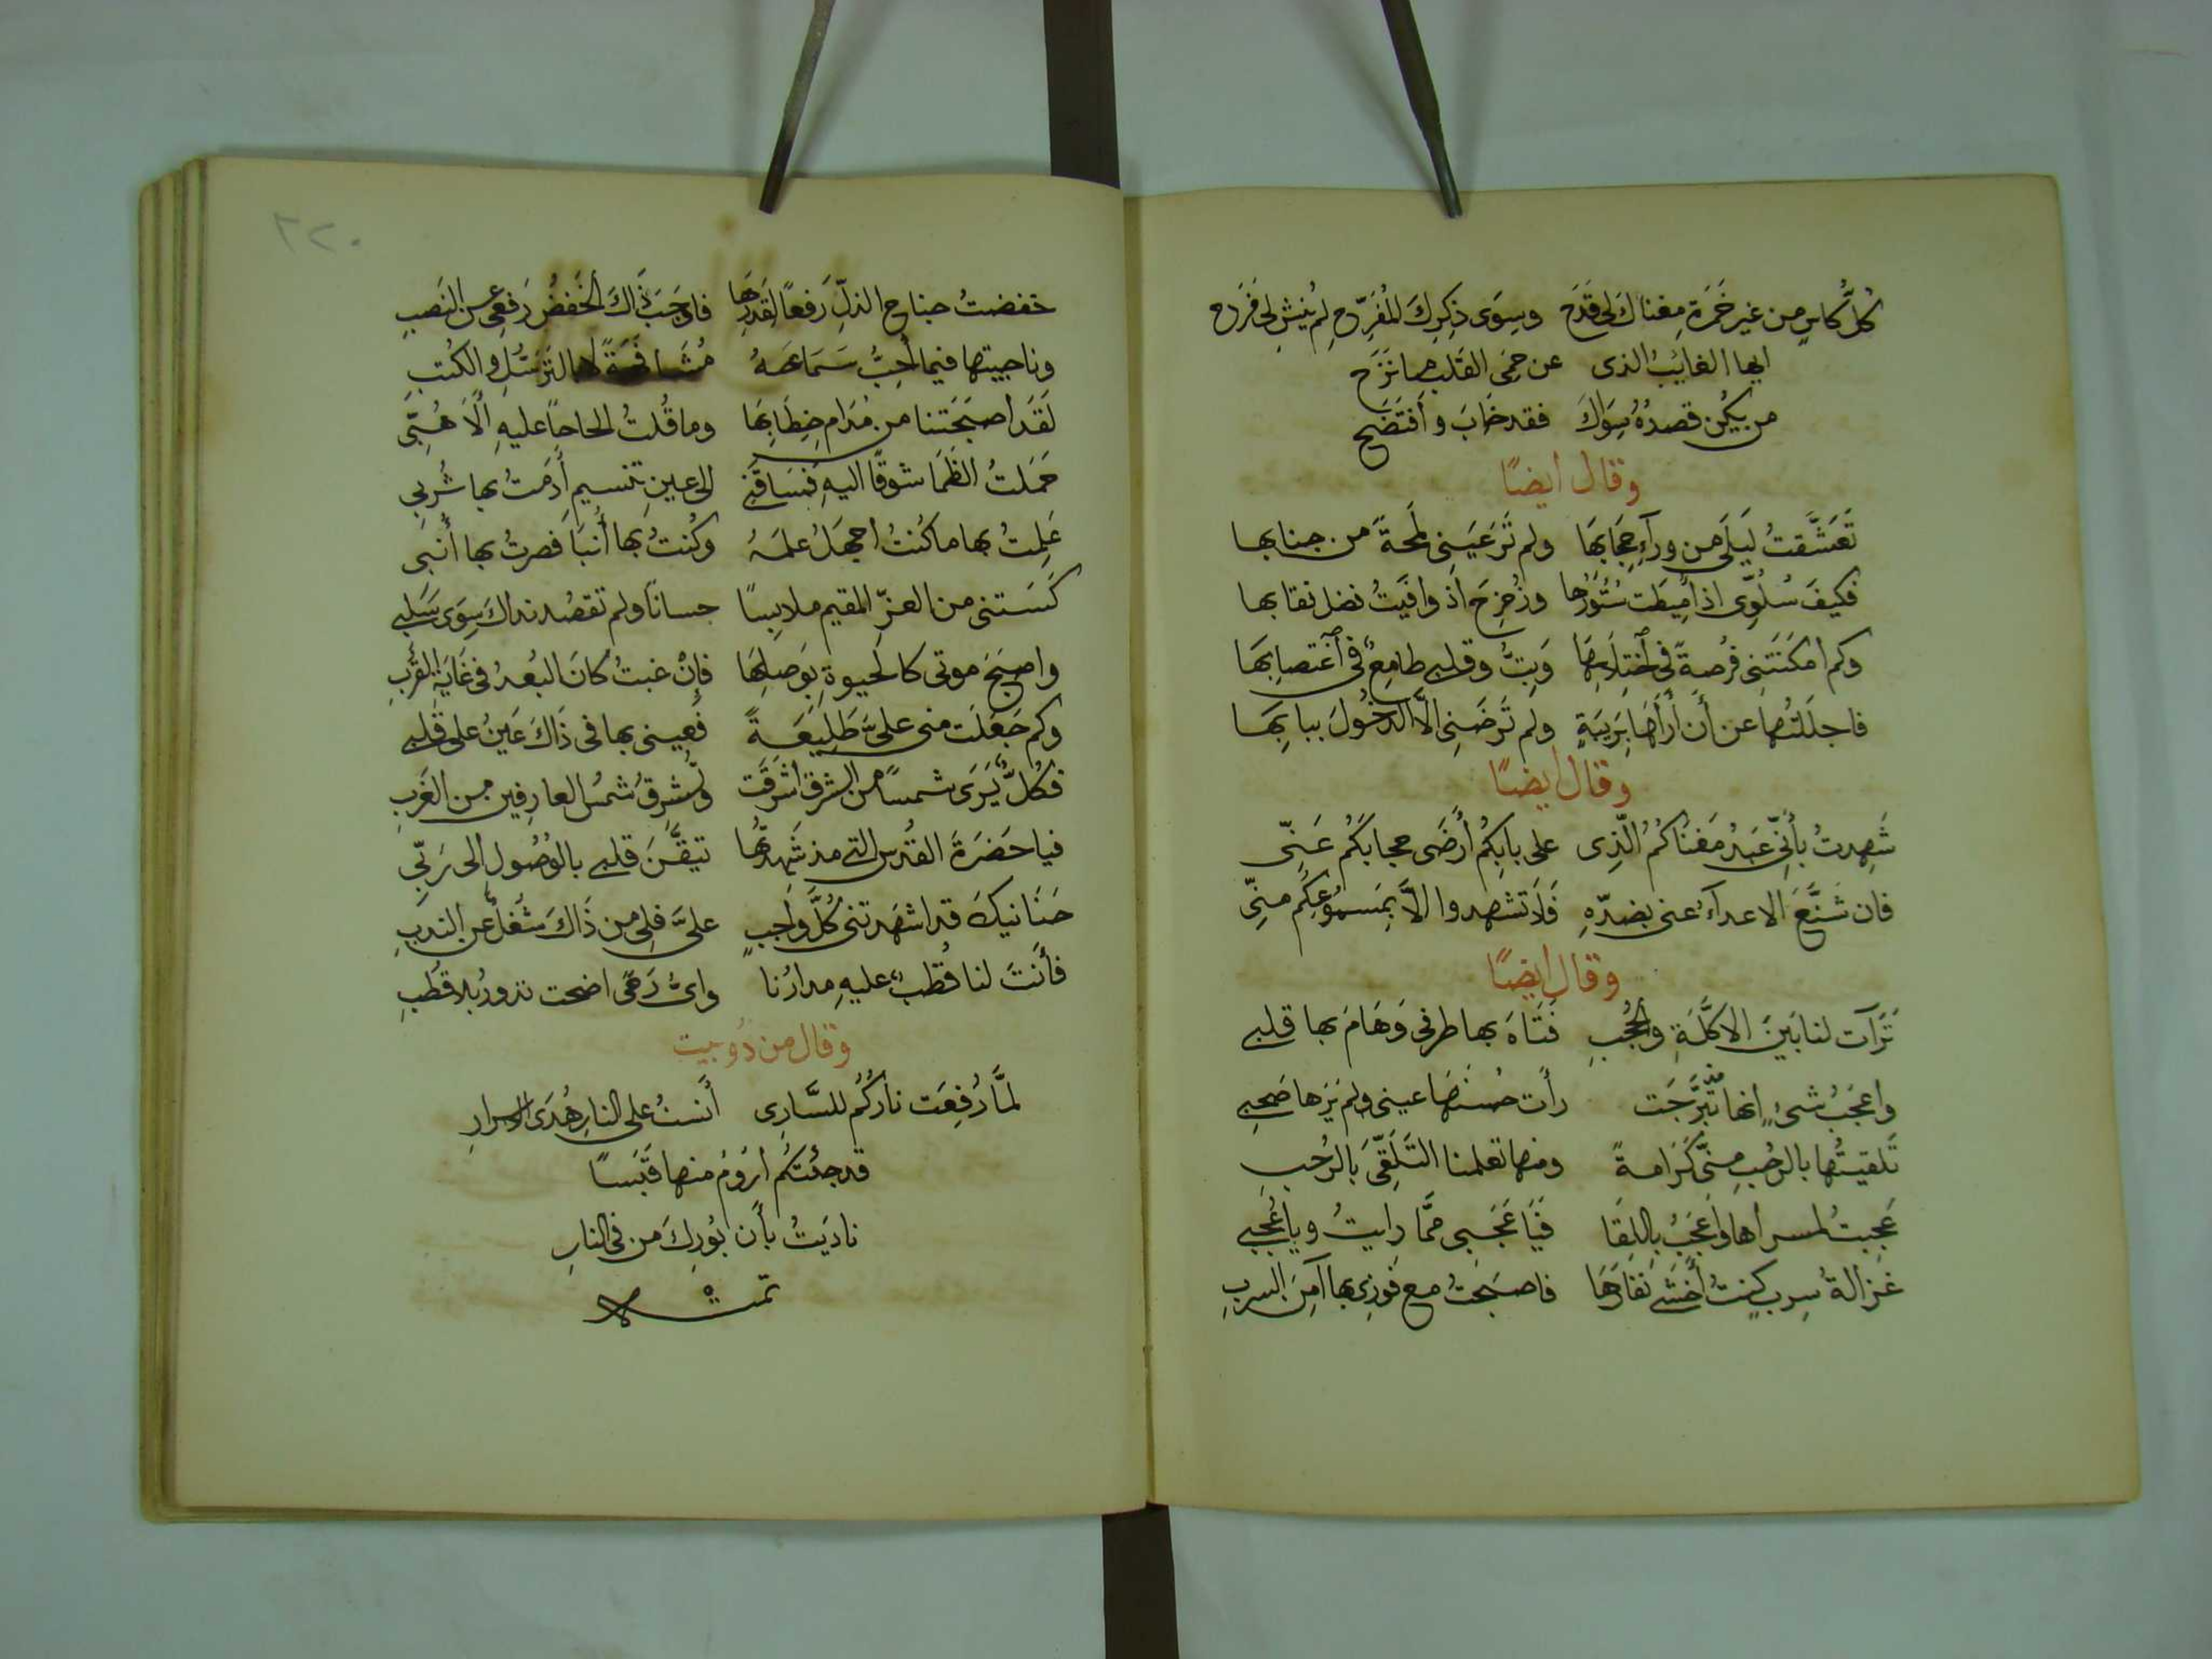 كُلُّ كاسٍ من غير خَمرَةِ مغناكَ لى قَدَح وسِوَى ذِكرِكَ المُفَرِّحِ لم يُنشِ لى فَرَح
ايها الغايبُ الذى عن حِمَى القَلبِ ما نَزَح
من يكُن قصدُهُ سِوَاكَ فقد خَابَ وأفتَضَح
وقال ايضًا
تَعَشَّقتُ لَيلَى من ورآءِ حِجَابِهَا ولم تَرَ عَينِى لَمحَةً من جنابها
فكيفَ سُلُوِّى اذ أُمِيطَت سُتُورُها وزُحزِحَ اذ وافَيتُ فضل نقابها
وكم امكَنَتنِى فُرصةٌ فى أختِلَاسِهَا وَبِتُّ وقلبى طامِعٌ فى أغتصابِهَا
فاجلَلتُها عن أَن أَرَاهَا بِرَيبَةٍ ولم تَرضَنِى الَّا الدخُولَ ببابِهَا
وقال ايضًا
شَهِدتُ بأَنِّى عَبدُ مَغنَاكُمُ الَّذِى على بابِكُم أَرضَى حجابَكُم عَنِّى
فان شَنَّعَ الاعدآءُ عنى بضدّهِ فَلَا تشهدوا الَّا بمَسموُعِكُم منِّى
وقال ايضًا
تَرَآت لنا بَينَ الاكلَّةِ والحُجُبِ فَتَاهَ بها طرفى وَهَامَ بها قلبى
واعجَبُ شىءٍ انها مذ تَبَرَّجَت رأت حُسنَهَا عينى ولم يَرَها صَحبى
تَلَقيتُها بالرحُبِ مِنّى كَرَامةً ومنها تعلمنا التَلَقِّىَ بالرُحبِ
عَجِبتُ لمسراها وأعجَبُ باللِقَا فيَا عَجَبى ممَّا رايتُ ويا عُجبى
غزالةُ سِربٍ كنتُ أخشَى نِفَارَهَا فاصبَحتُ مع فَوزِى بها آمِنَ السربِ
٢٢٠
خفضتُ جناحَ الذلِّ رَفعًا لقَدرِهَا فاوجَبَ ذَاكَ الخَفضُ رَفعِى عن النَصبِ
وناجيتها فيما أُحِبُّ سَمَاعَهُ مُشَافَهَةً لا بالتَرَسُّلِ والكُتبِ
لَقَد أصبَحَتنا من مُدَامِ خِطَابِهَا وما قُلتُ الحاحًا عليهِ أَلَا هُبِّى
حَمَلتُ الظَمَا شوقًا اليهِ فَسَاقَنِى الى عينِ تنسيمٍ أدَمتُ بها شُربِى
عَلِمتُ بها ما كُنتُ اجهَلُ علمَهُ وكُنتُ بها أُنبَا فَصرتُ بها أُنبى
كَسَتنى من العزِّ المقيمِ ملابِسًا حسانًا ولم تقصُد بذاكَ سِوَى سَلبى
واصبحَ موتى كالحيوةِ بوَصلِهَا فإِنْ غبتُ كانَ البُعدُ فى غَايَةِ القُربِ
وكم جَعَلَت منى علىَّ طَلِيعَةً فَعينى بها فى ذَاكَ عَينٌ على قلبى
فكُلٌّ يَرَى شمسًا من الشرقِ أشرَقَت وتُشرِقُ شمسُ العارِفين من الغَربِ
فيا حَضرَةَ القُدسِ التى مذ شَهِدتُهَا تيقَّنَ قلبى بالوُصُولِ الى رَبِّى
حَنَانيكَ قد اشهَدتنى كُلَّ واجِبٍ علىَّ فلى من ذَاكَ شُغلٌ عن الندبِ
فأَنتَ لنا قُطبٌ عليهِ مدارُنا واىُّ رَحًى اضحت تدورُ بلا قُطبِ
وقال من دُوبيت
لمَّا رُفِعَت نارُكُم للسَّارِى أنستُ على النارِ هُدَى
قد جئتكُم ارُومُ منها قَبَسًا
نادَيتُ بأَن بُورِكَ مَن فى النارِ
تمت